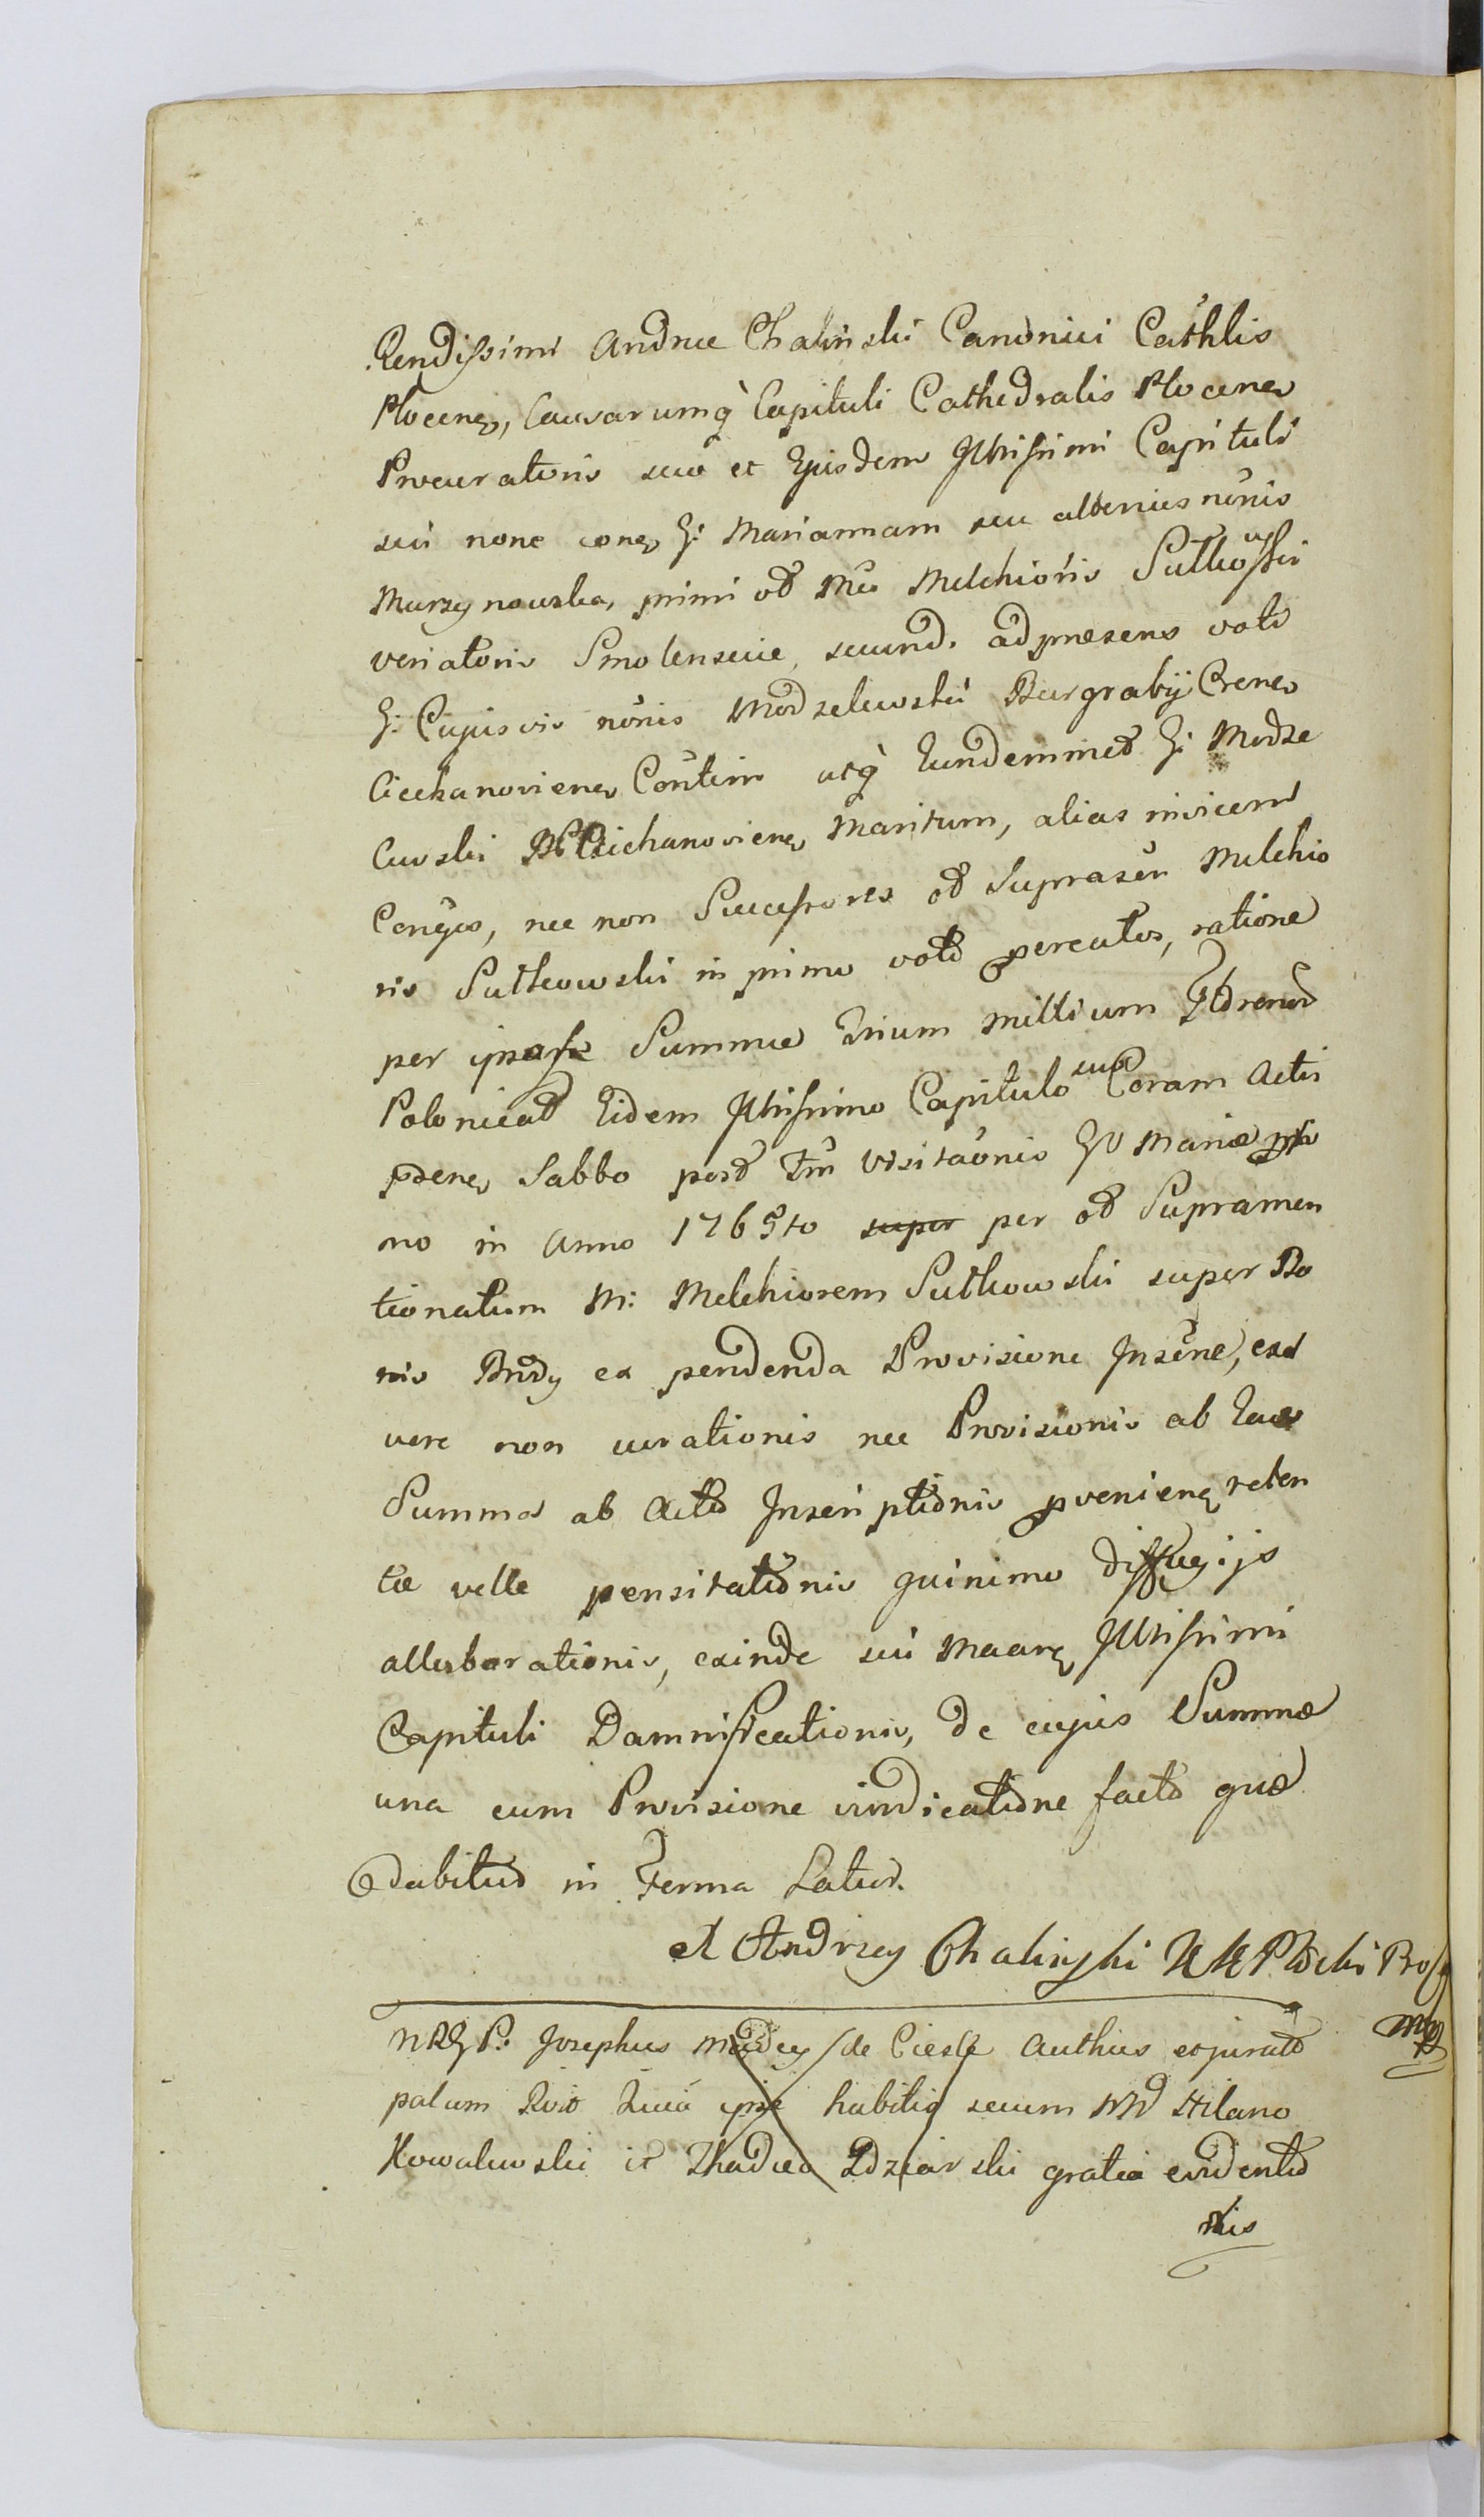 Rendissimi Andreæ Chalinski Canonici Cathlis
Plocens, Causarumq Capituli Cathedralis Plocens
Procuratoris suo et Ejusdem Illrissimi Capituli
sui none cons G: Mariannam seu alterius nonis
Murzynowska, primi od Mci Melchioris Sutkowski
venatoris Smolensciæ, secund. ad præsens voti
G: Cujusvis nonis Modzelewski Burgrabij Crens
Ciechanoviens Contim atq Eundemmet G: Modze
lewski BC Ciechanoviens Maritum, alias invicem
Conges, nec non Successores od Suprascri Melchio
ris Sutkowski in primo voto percatos, ratione
per ipsos Summæ Trium Millium Florenor
Polonical Eidem Illrissimo Capitulo suo Coram Actis
psens Sabbo post Fm Visitaonis BV Mariæ
no in Anno 1765to super per od Supramen
tionatum M: Melchiorem Sutkowski super Bo
nis Brody ex pendenda Provisione Inscne, exol
vere non curationis nec Provisionis ab Eadem
Summa ab Acto Inscriptionis pveniens reten
tæ velle pensitationis quinimo diffugijs
allaborationis, exinde sui Maarq Illrissimi
Capituli Damnificationis, de cujus Summæ
una cum Provisione vindicatione facto quæ
dabitur in Termo Latius.
X Andrzey Chaliński KK Płocki Prof
mp
NRG P: Josephus Madey de Ciesle Authus et jurato
palam Rvit Quia ipse habitis secum NN Hilario
Kowalewski et Thadeo Zdziarski gratia evidentio
ris